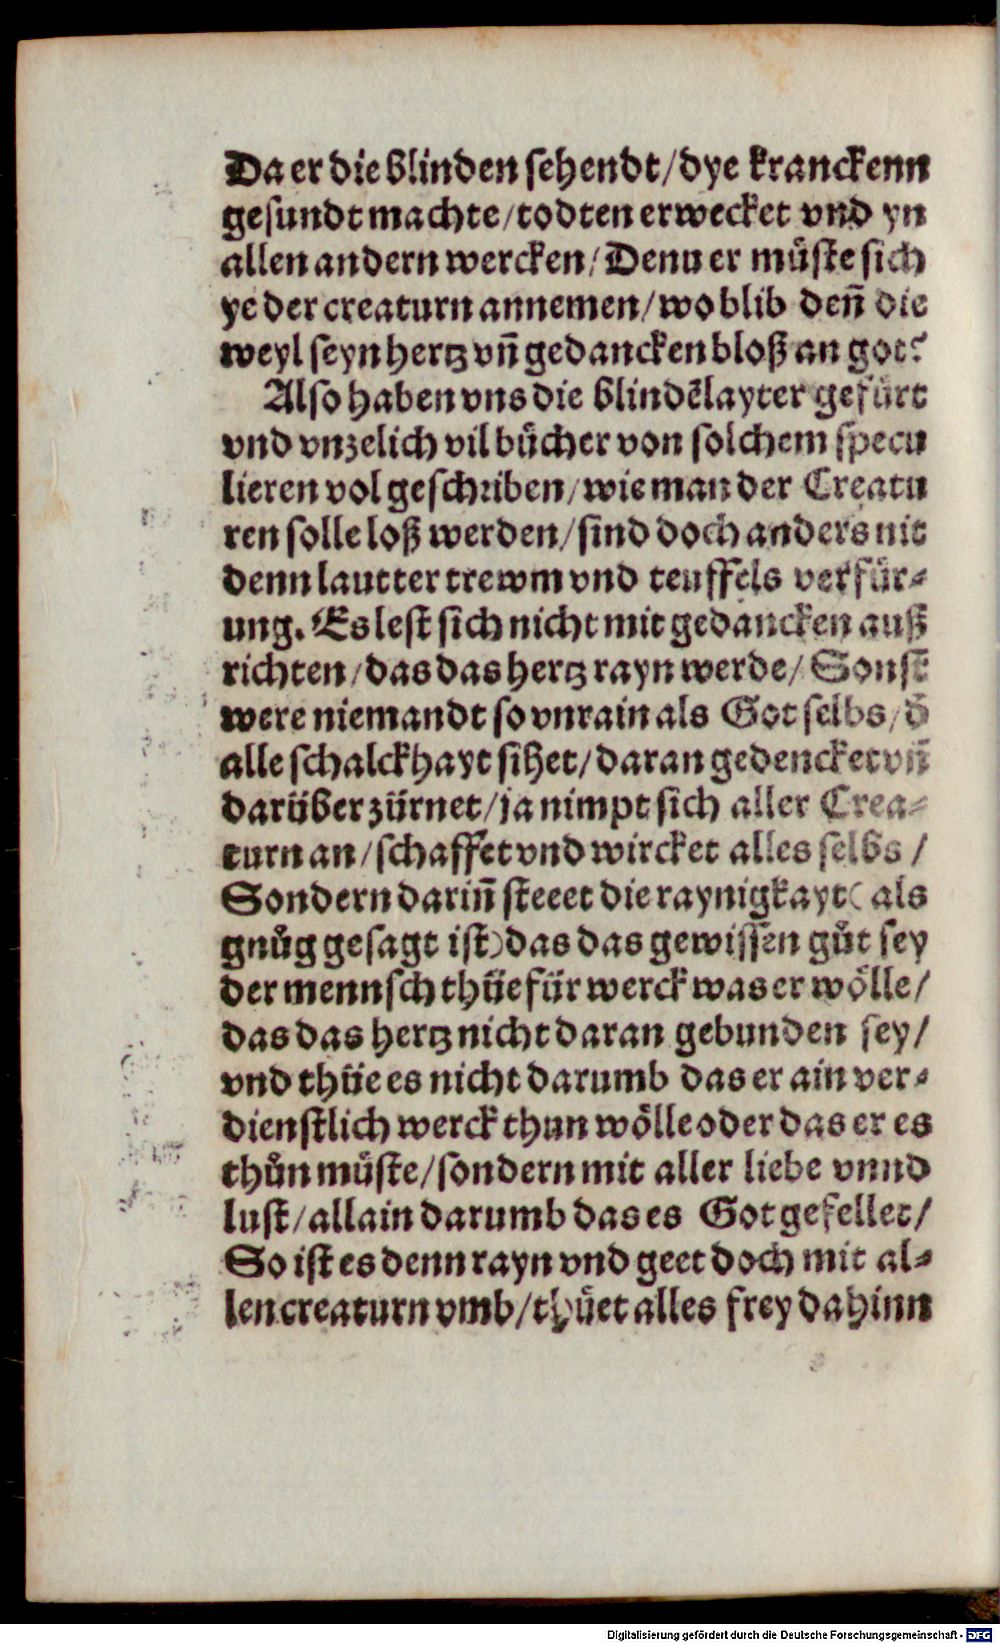 Da er die blinden sehendt/dye kranckenn
gesundt machte/todten erwecket vnd yn
allen andern wercken/Denn er müste sich
ye der creaturn annemen/wo blib deñ die
weyl seyn hertz vñ gedancken bloß an got?
Also haben vns die blindẽlayter gefürt
vnd vnzelich vil bücher von solchem specu
lieren vol geschriben/wie man der Creatu
ren solle loß werden/sind doch anders nit
denn lautter trewm vnd teuffels verfür-
ung. Es lest sich nicht mit gedancken auß
richten/das das hertz rayn werde/Sonst
were niemandt so vnrain als Got selbs/d̃
alle schalckhayt sihet/daran gedencket vñ
darüber zürnet/ja nimpt sich aller Crea-
turn an/schaffet vnd wircket alles selbs/
Sondern dariñ steeet die raynigkayt( als
gnůg gesagt ist)das das gewissen gůt sey
der mennsch thüe für werck was er wölle/
das das hertz nicht daran gebunden sey/
vnd thüe es nicht darumb das er ain ver-
dienstlich werck thun wölle oder das er es
thůn müste/sondern mit aller liebe vnnd
lust/allain darumb das es Got gefellet/
So ist es denn rayn vnd geet doch mit al-
len creaturn vmb/thüet alles frey dahinn
Digitalisierung gefördert durch die Deutsche Forschungsgemeinschaft - DFG